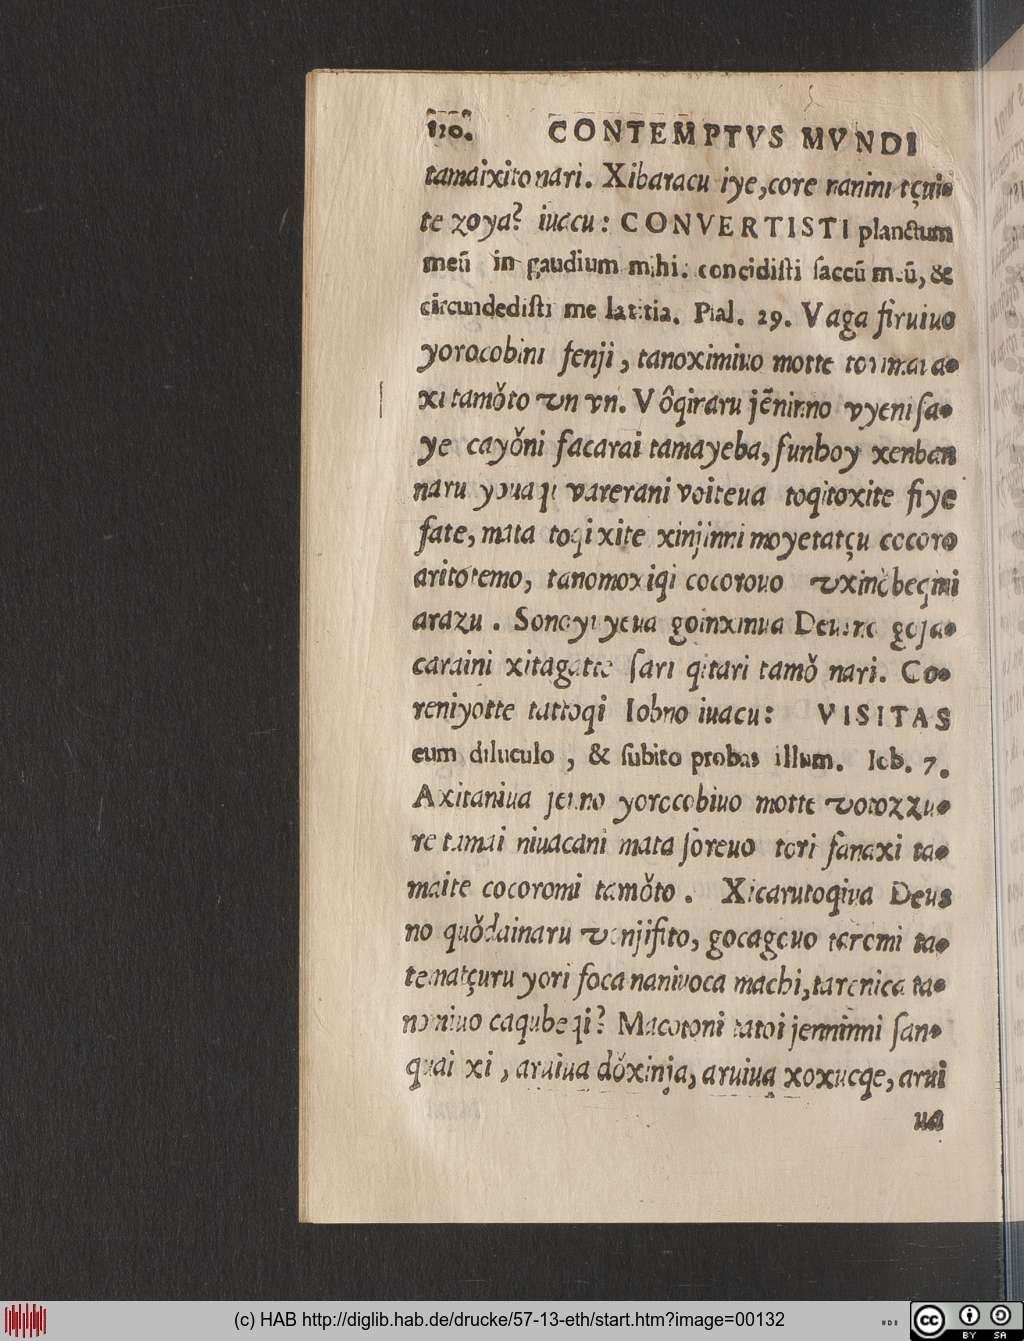 120. CONTEMPTVS MVNDI
tamaixito nari. Xibaracu iye, core nanini tçui-
te zoya? iuacu: CONVERTISTI planctum
meū in gaudium mihi: concidisti saccū meū, &
circundedisti me lætitia. Psal. 29. Vaga firuiuo
yorocobini fenji, tanoximiuo motte
xi tamǒto vn vn. Vôqinaru jẽninno vyeni sa-
ye cayǒni facarai tamayeba, funboy xenban
naru youaqi varerani voiteua toqitoxite fiye
fate, mata toqi xite xinjinni moyetatçu cocoro
aritotemo, tanomoxiqi cocorouo vxinòbeqini
arazu. Sonoyuyeua goinxinua Deusno gofa-
caraini xitagatte sari qitari tamǒ nari. Co-
reniyotte tattoqi Iobno iuacu: VISITAS
eum diluculo, & subito probas illum. Iob. 7.
Axitaniua jenno yorocobiuo motte votozzu-
re tamai niuacani mata soreuo tori fanaxi ta-
maite cocoromi tamǒto. Xicarutoqiua Deus
no quǒdainaru vonjifito, gocagouo taromi ta-
tematçuru yori foca nanivoca machi, tarenica ta-
nomiuo caqubeqi? Macotoni tatoi jenninni san-
quai xi, aruiua dǒxinja, aruiua xoxucqe, arui
ua
(c) HAB http://diglib.hab.de/drucke/57-13-eth/start.htm?image=00132
cc BY SA